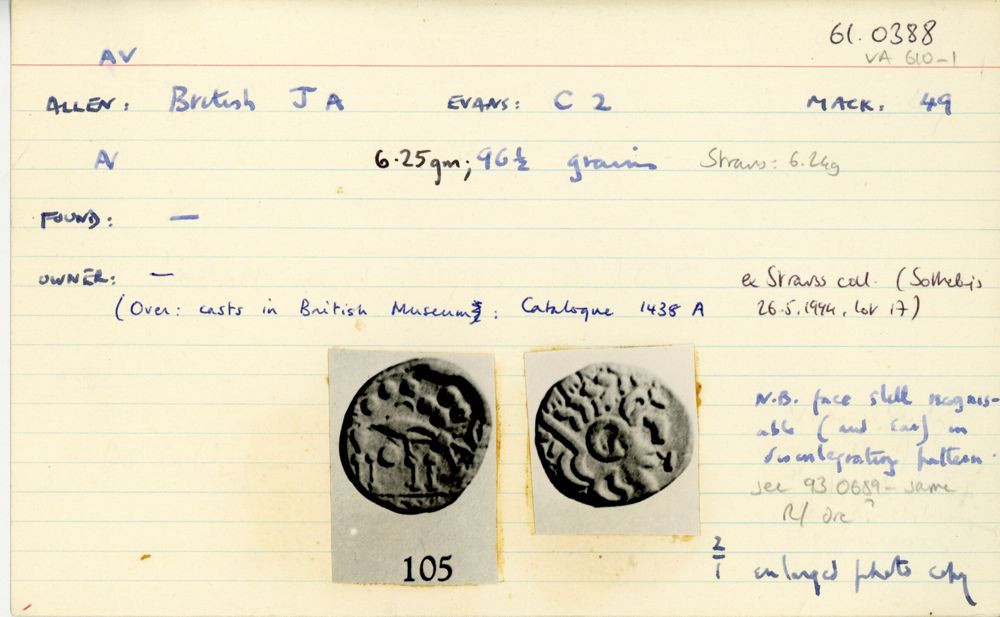 61.0388
VA 610-1
AV
ALLEN: British J A EVANS: C 2 MACK: 49
AV 6.25gm; 96½ grains Strauss: 6.24g
FOUND: —
OWNER: —
ex Strauss coll. (Sothebys
26.5.1994, lot 17)
(Over: casts in British Museum: Catalogue 1438 A
N.B. face still recognis-
able (and ear) in
disintegrating pattern.
see 93.0689 - same
R/ die?
105
2/1 enlarged photo copy